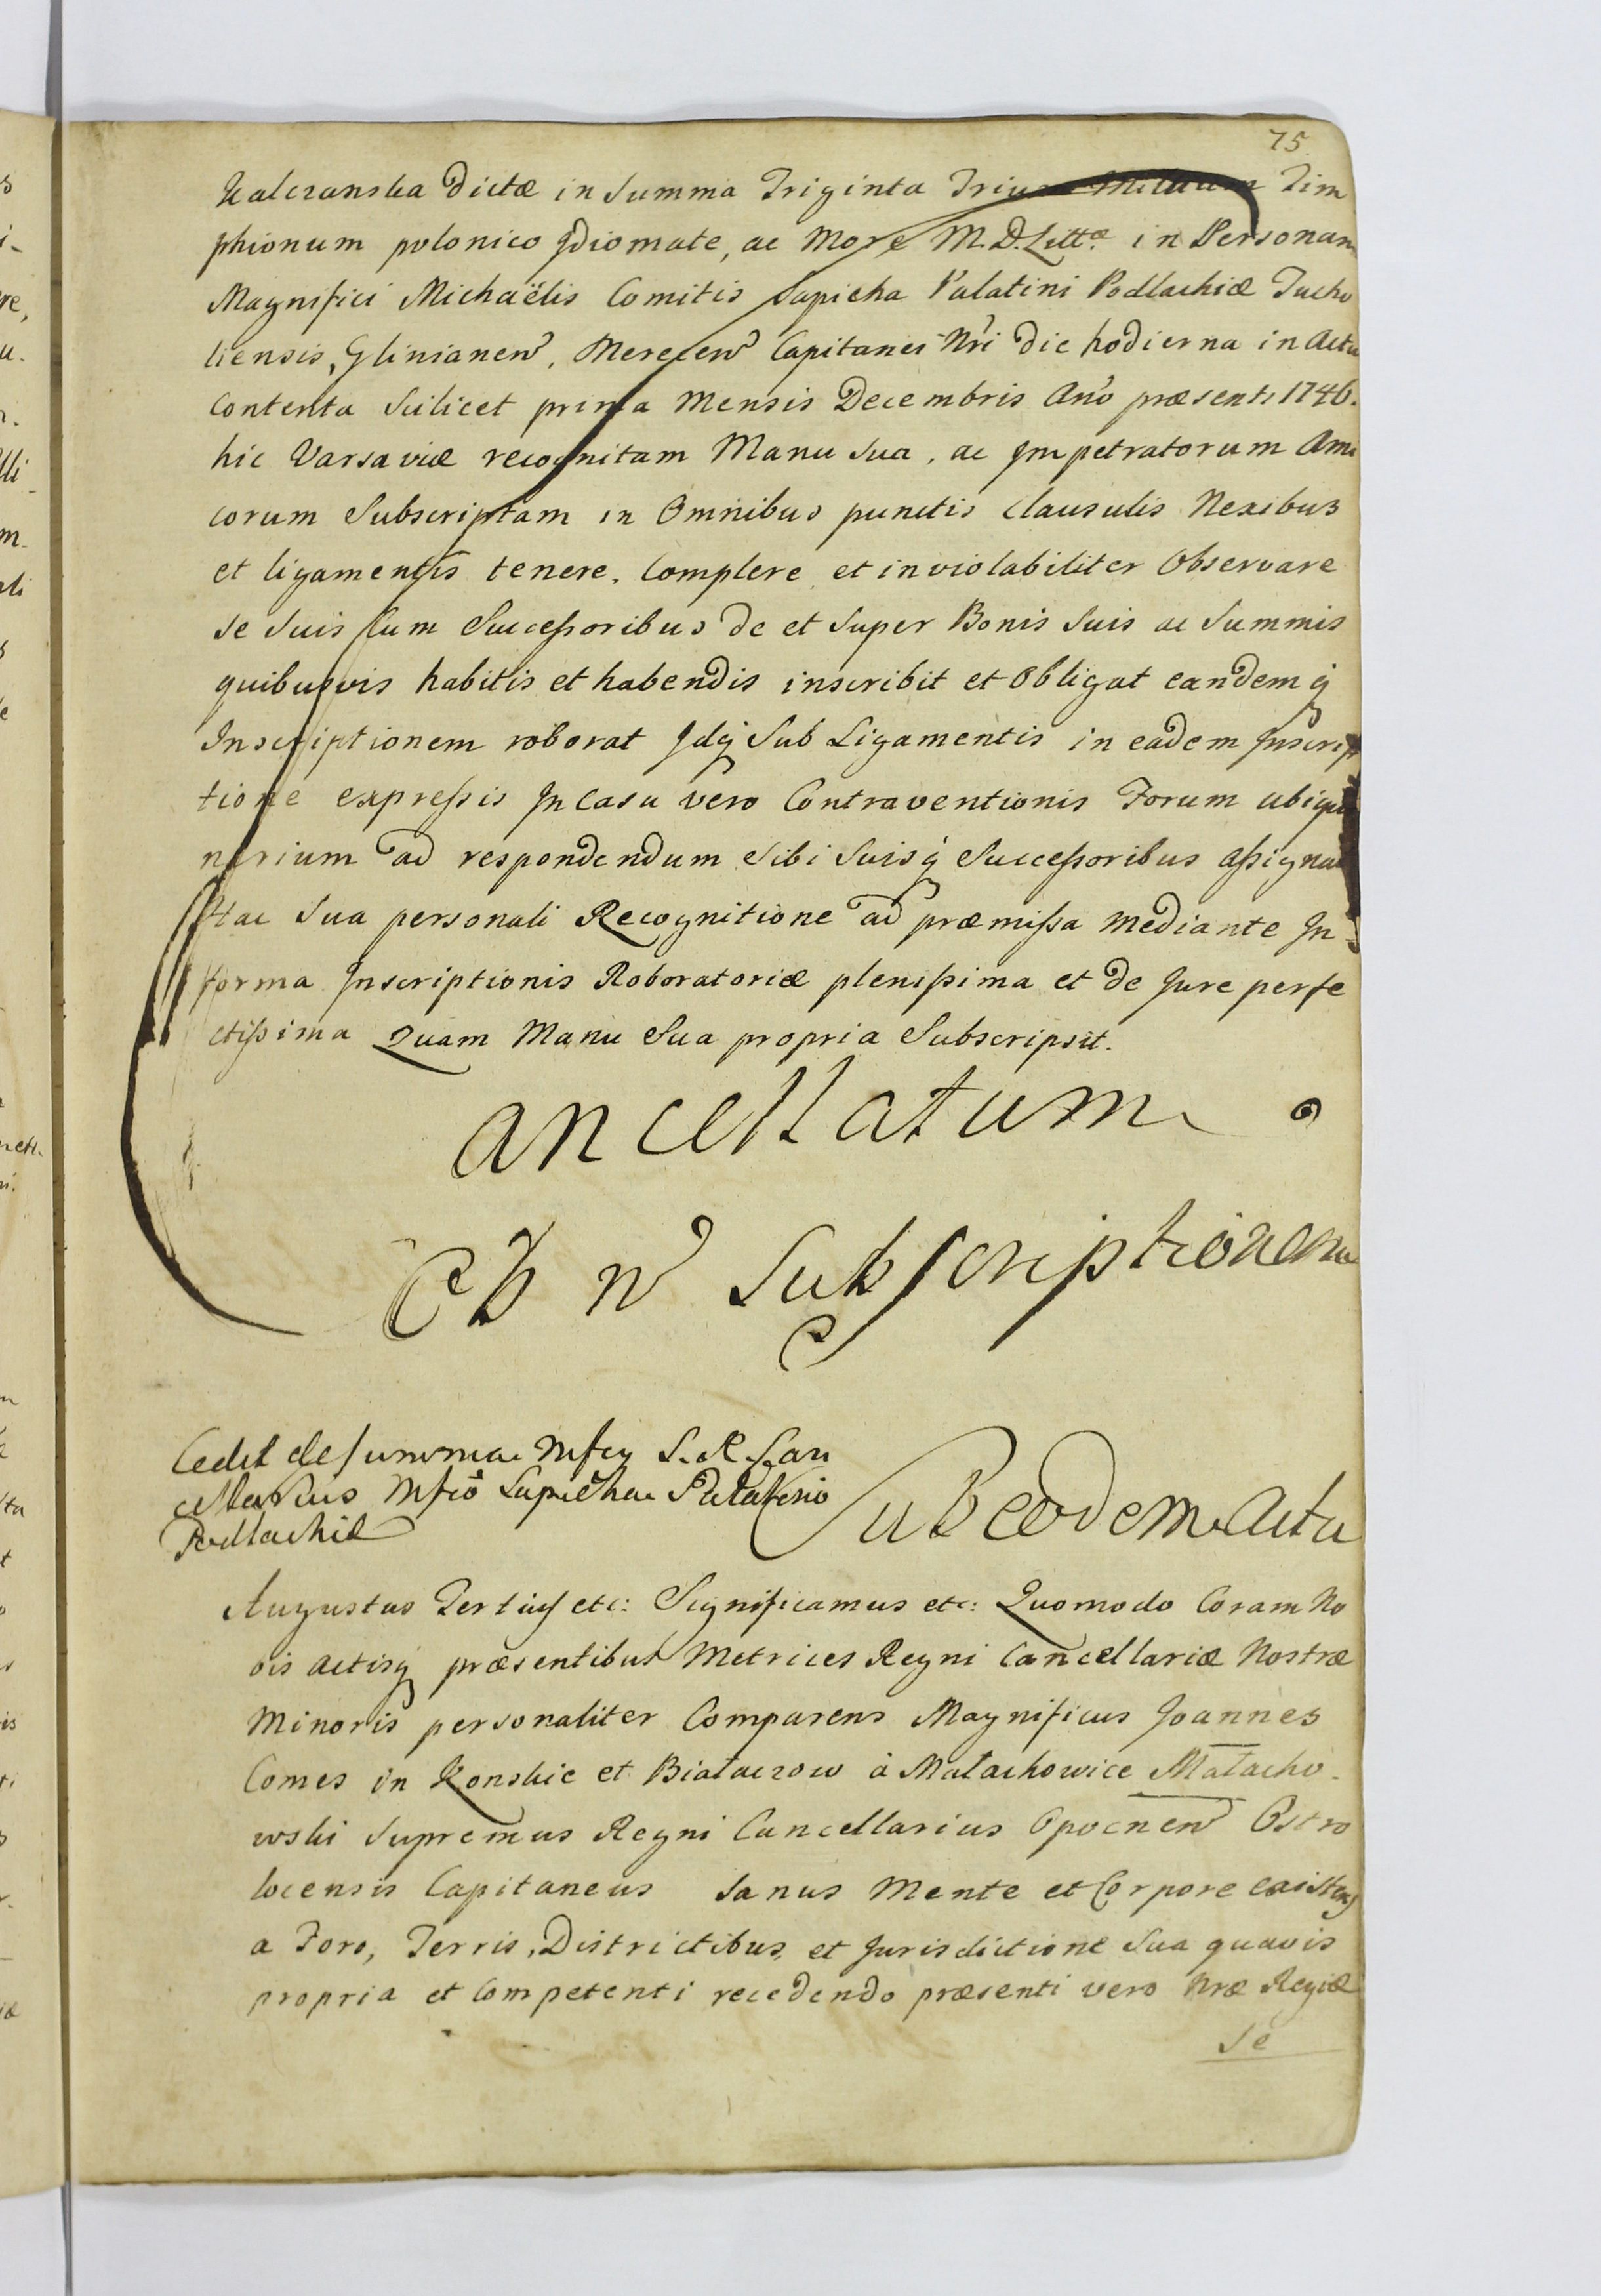 75.
Kalczanska dictæ in Summa Triginta Trium Millium Tim
phionum polonico Jdiomate, ac More M.D.Littæ in Personam
Magnifici Michaëlis Comitis Sapieha Palatini Podlachiæ Tucho
liensis, Glinianen, Merecen Capitanei Nri die hodierna in Actu
contenta Scilicet prima Mensis Decembris Año præsenti 1746.
hic Varsaviæ recognitam Manu Sua, ac Jmpetratorum Ami
corum Subscriptam in Omnibus punctis clausulis Nexibus
et ligamentis tenere, Complere et inviolabiliter Observare
se Suis cum Successoribus de et Super Bonis Suis ac Summis
quibusvis habitis et habendis inscribit et Obligat eandemq
Inscriptionem roborat Jdq Sub Ligamentis in eadem Jnscrip
tione expressis Jn Casu vero Contraventionis Forum ubiqui
narium ad respondendum Sibi Suisq Successoribus assignat
Hac Sua personali Recognitione ad præmissa mediante Jn
forma Jnscriptionis Roboratoriæ plenissima et de Jure perfe
ctissima Quam Manu Sua propria Subscripsit.
Cancellatum
Ob n Subscriptionem
Cedit de summa Mfcus S. R. Can
cellarius Mfco Sapieha Palatino
Podlachiæ
Sub eodem Actu
Augustus Tertius etc: Significamus etc: Quomodo Coram No
bis Actisq præsentibus Metrices Regni Cancellariæ Nostræ
Minoris personaliter Comparens Magnificus Joannes
Comes in Konskie et Białaczow à Małachowice Małacho-
wski Supremus Regni Cancellarius Opocnen Ostro
locensis Capitaneus Sanus Mente et Corpore existens
a Foro, Terris, Districtibus, et Jurisdictione Sua quavis
propria et Competenti recedendo præsenti vero Nræ Regiæ
Se